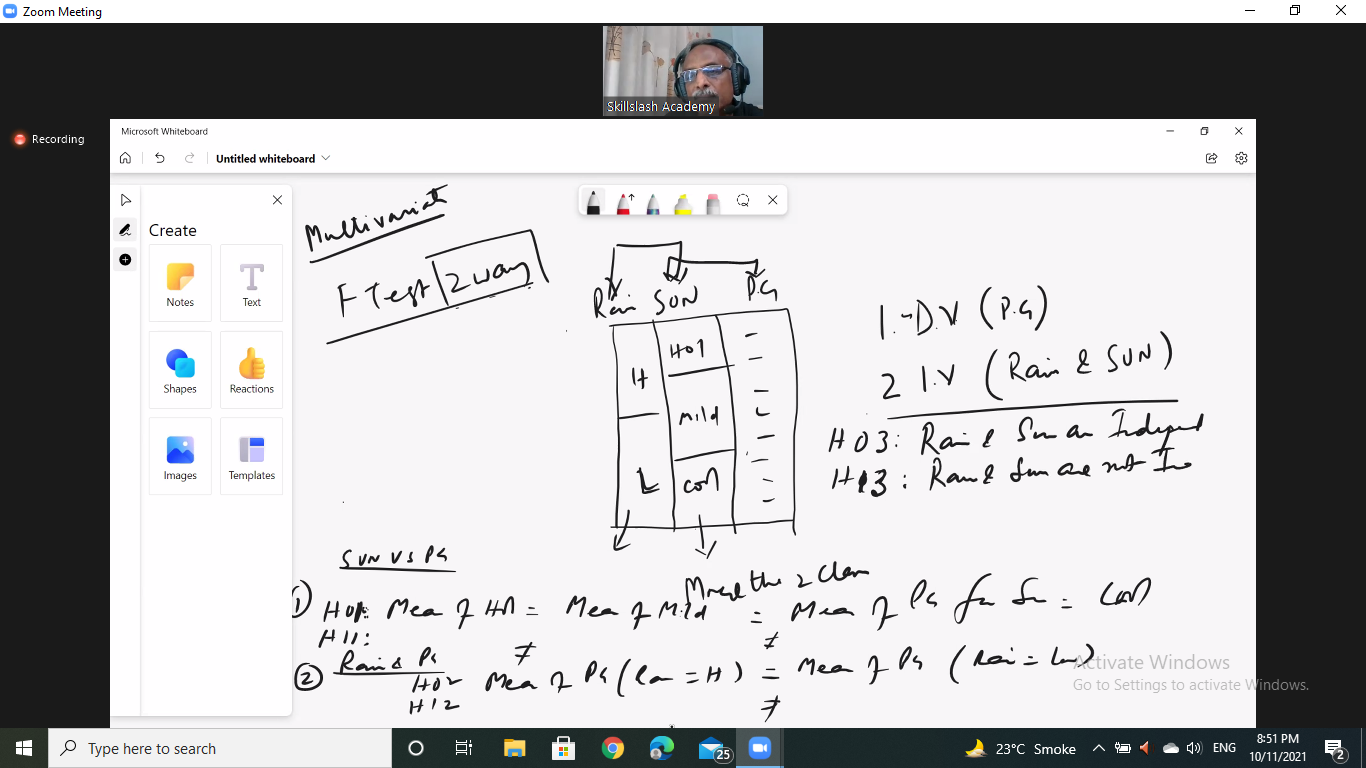 Zoom Meeting
Skillslash Academy
Recording
Microsoft Whiteboard
Untitled whiteboard
Create
Notes
Text
Shapes
Reactions
Images
Templates
Multivariat
F Test 2 way
Rain SUN P.G
H
L
Hot
mild
1.-D.V (P.G)
2 I.V (Rain & SUN)
H03: Rain & Sun are Independ
H13: Rain & Sun are not In
SUN VS PG
more than 2 class
① H01: Mean of Hot = Mean of Mild = Mean of PG for Sun =
H11: ≠ ≠
② Rain & PG
H02 Mean of PG (Rain = H) = Mean of PG (Rain = Low)
H12 ≠
Activate Windows
Go to Settings to activate Windows.
Type here to search
25
23°C Smoke
ENG
8:51 PM
10/11/2021
2